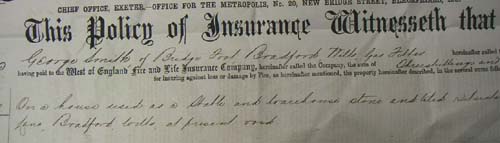 CHIEF OFFICE, EXETER,—OFFICE FOR THE METROPOLIS, No. 20, NEW BRIDGE STREET, BLACKFRIARS,
This Policy of Insurance Witnesseth that
George Smith of Bridge Foot Bradford Wilts Gas Fitter hereinafter called
having paid to the West of England Fire and Life Insurance Company, hereinafter called the Company, the sum of Three shillings and
for insuring against loss or damage by Fire, as hereinafter mentioned, the property hereinafter described, in the several sums
On a house used as a Stable and warehouse stone and tiled
Bradford Wilts, at present void